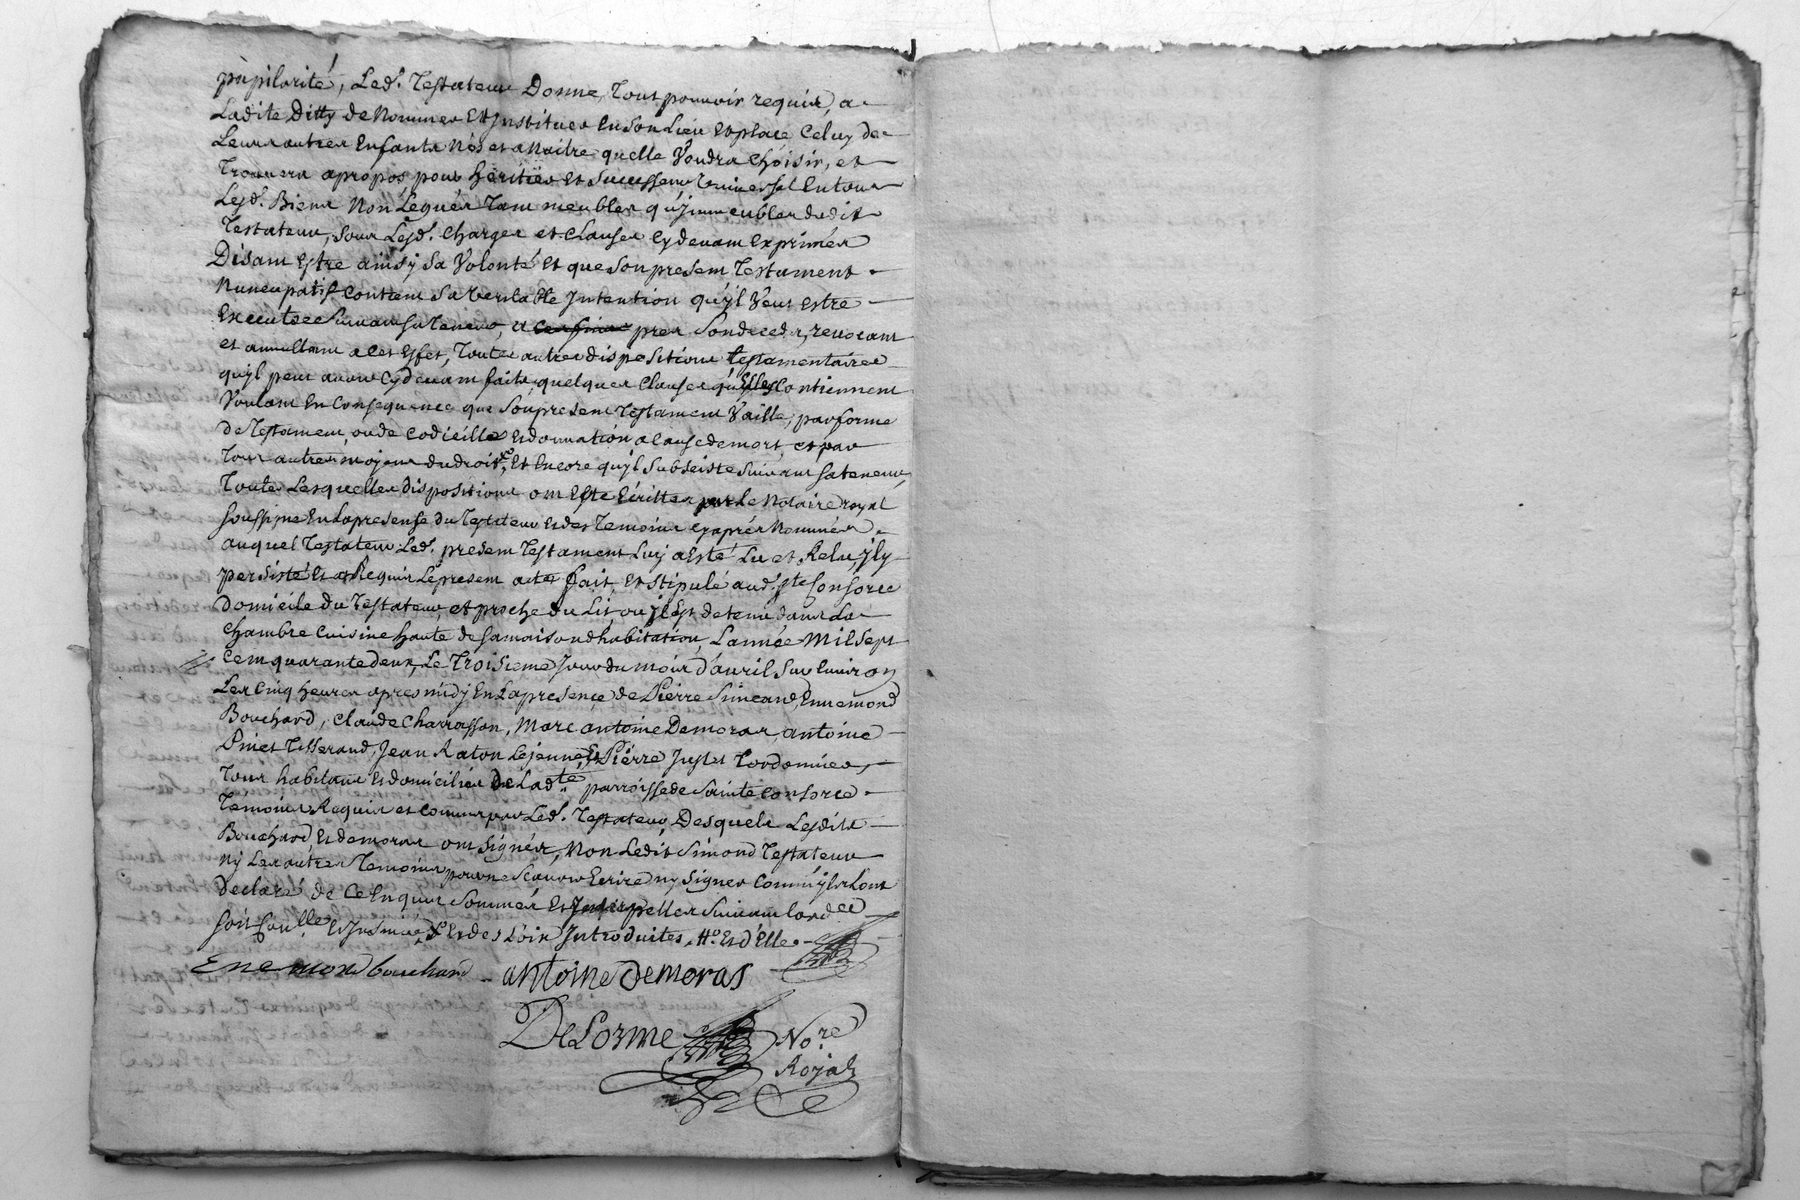 pupilarité, Led.t Testateur Donne, Tout pouvoir requis, a
Ladite Ditty de Nommer Et Instituer En Son Lieu et place Celuy de
Leurs autres Enfants Nés et a Naitre quelle Voudra Choisir, et
Trouvera apropos pour héritier et Successeur Universel En tous
Lesd.s Biens Non Legués Tant meubles qu'jmmeubles dudit
Testateur, Sous Lesd.s Charges et Clauses Cy devant Exprimées
Disant Estre ainsÿ Sa Volonté Et que Son present Testament
Nuncupatif Contient Sa Veritable Intention qu'jl Veut Estre
Executée Suivant Sa Teneur, a pres Son deceds, revocant
et annullant a Cet Effet, Toutes autres dispositions testamentaires
qujl peut avoir Cy devant faits quelques Clauses qu'Elles Contiennent
Voulant En Consequence que Son present Testament Vaille, par forme
de Testament, ou de Codicille et donnation a Cause de mort, et par
Tous autres moyens du droit, Et Encore qujl Subsiste Suivant Sa teneur,
Toutes Lesquelles dispositions ont Esté Ecrittes par Le Notaire royal
Soussigné En La presense du Testateur et des Temoins cy aprés Nommés
auquel Testateur Led.t present Testament Luy a Esté Lu et Relu, jl y
persisté Et a Requis Le present acte fait, et Stipulé aud.t S.te Consorce
domicile du Testateur, et proche du Lit, ou jl Est detenu dans La
Chambre Cuisine haute de Sa maison dhabitation, L'année Mil Sept
Cent quarante deux, Le Troisieme Jour du mois d'avril Sur Environ
Les Cinq heures apres midÿ En La presence de Pierre Simeand, Ennemond
Bouchard, Claude Charrasson, Marc antoine Demoras, antoine
Pinet Tisserand, Jean Raton Lejeune, Et Pierre Juste Cordonnier,
Tous habitans et domiciliés De Lad.te parroisse de Sainte Consorce
Témoins Requis et Connus par Led.t Testateur, Desquels Lesdits
Bouchard, et demoras ont Signés, Non Ledit Simond Testateur
Ny Les autres Temoins pour ne Scavoir Ecrire ny Signer Comm'jls Lont
Declaré de Ce Enquis Sommés Et Interpellés Suivant Lord.ce
et des Loix Introduites. Et d'Elle
Enemond bouchard antoine Demoras
DeLorme No.re
Royal